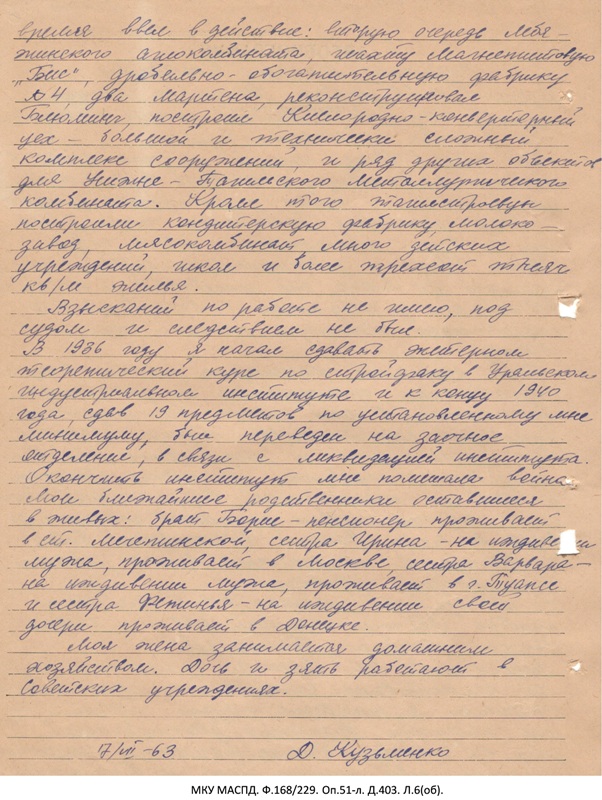 время ввел в действие: вторую очередь Лебя-
жинского аглокомбината, шахту Магнетитовую
"Бис", дробельно-обогатительную фабрику
№4, два Мартена, реконструировал
Блюминг, построил Кислородно-конвертерный
цех - большой и технически сложный
комплекс сооружений, и ряд других объектов
для Нижне-Тагильского металлургического
комбината. Кроме того тагилстроевцы
построили кондитерскую фабрику, молоко-
завод, мясокомбинат много детских
учреждений, школ и более трехсот тысяч
кв/м жилья.
Взысканий по работе не имею, под
судом и следствием не был.
В 1936 году я начал сдавать экстерном
теоретический курс по стройфаку в Уральском
индустриальном институте и к концу 1940
года, сдав 19 предметов по установленному мне
минимуму, был переведен на заочное
отделение, в связи с ликвидацией института.
Окончить институт мне помешала война.
Мои ближайшие родственники оставшиеся
в живых: брат Борис - пенсионер проживает
в ст. Мечетинской, сестра Ирина - на иждивении
мужа, проживает в Москве, сестра Варвара -
на иждивении мужа, проживает в г. Туапсе
и сестра Фетинья - на иждивении своей
дочери проживает в Донецке.
Моя жена занимается домашним
хозяйством. Дочь и зять работают в
Советских учреждениях.
7/VII-63 Д. Кузьменко
МКУ МАСПД. Ф.168/229. Оп.51-л. Д.403. Л.6(об).